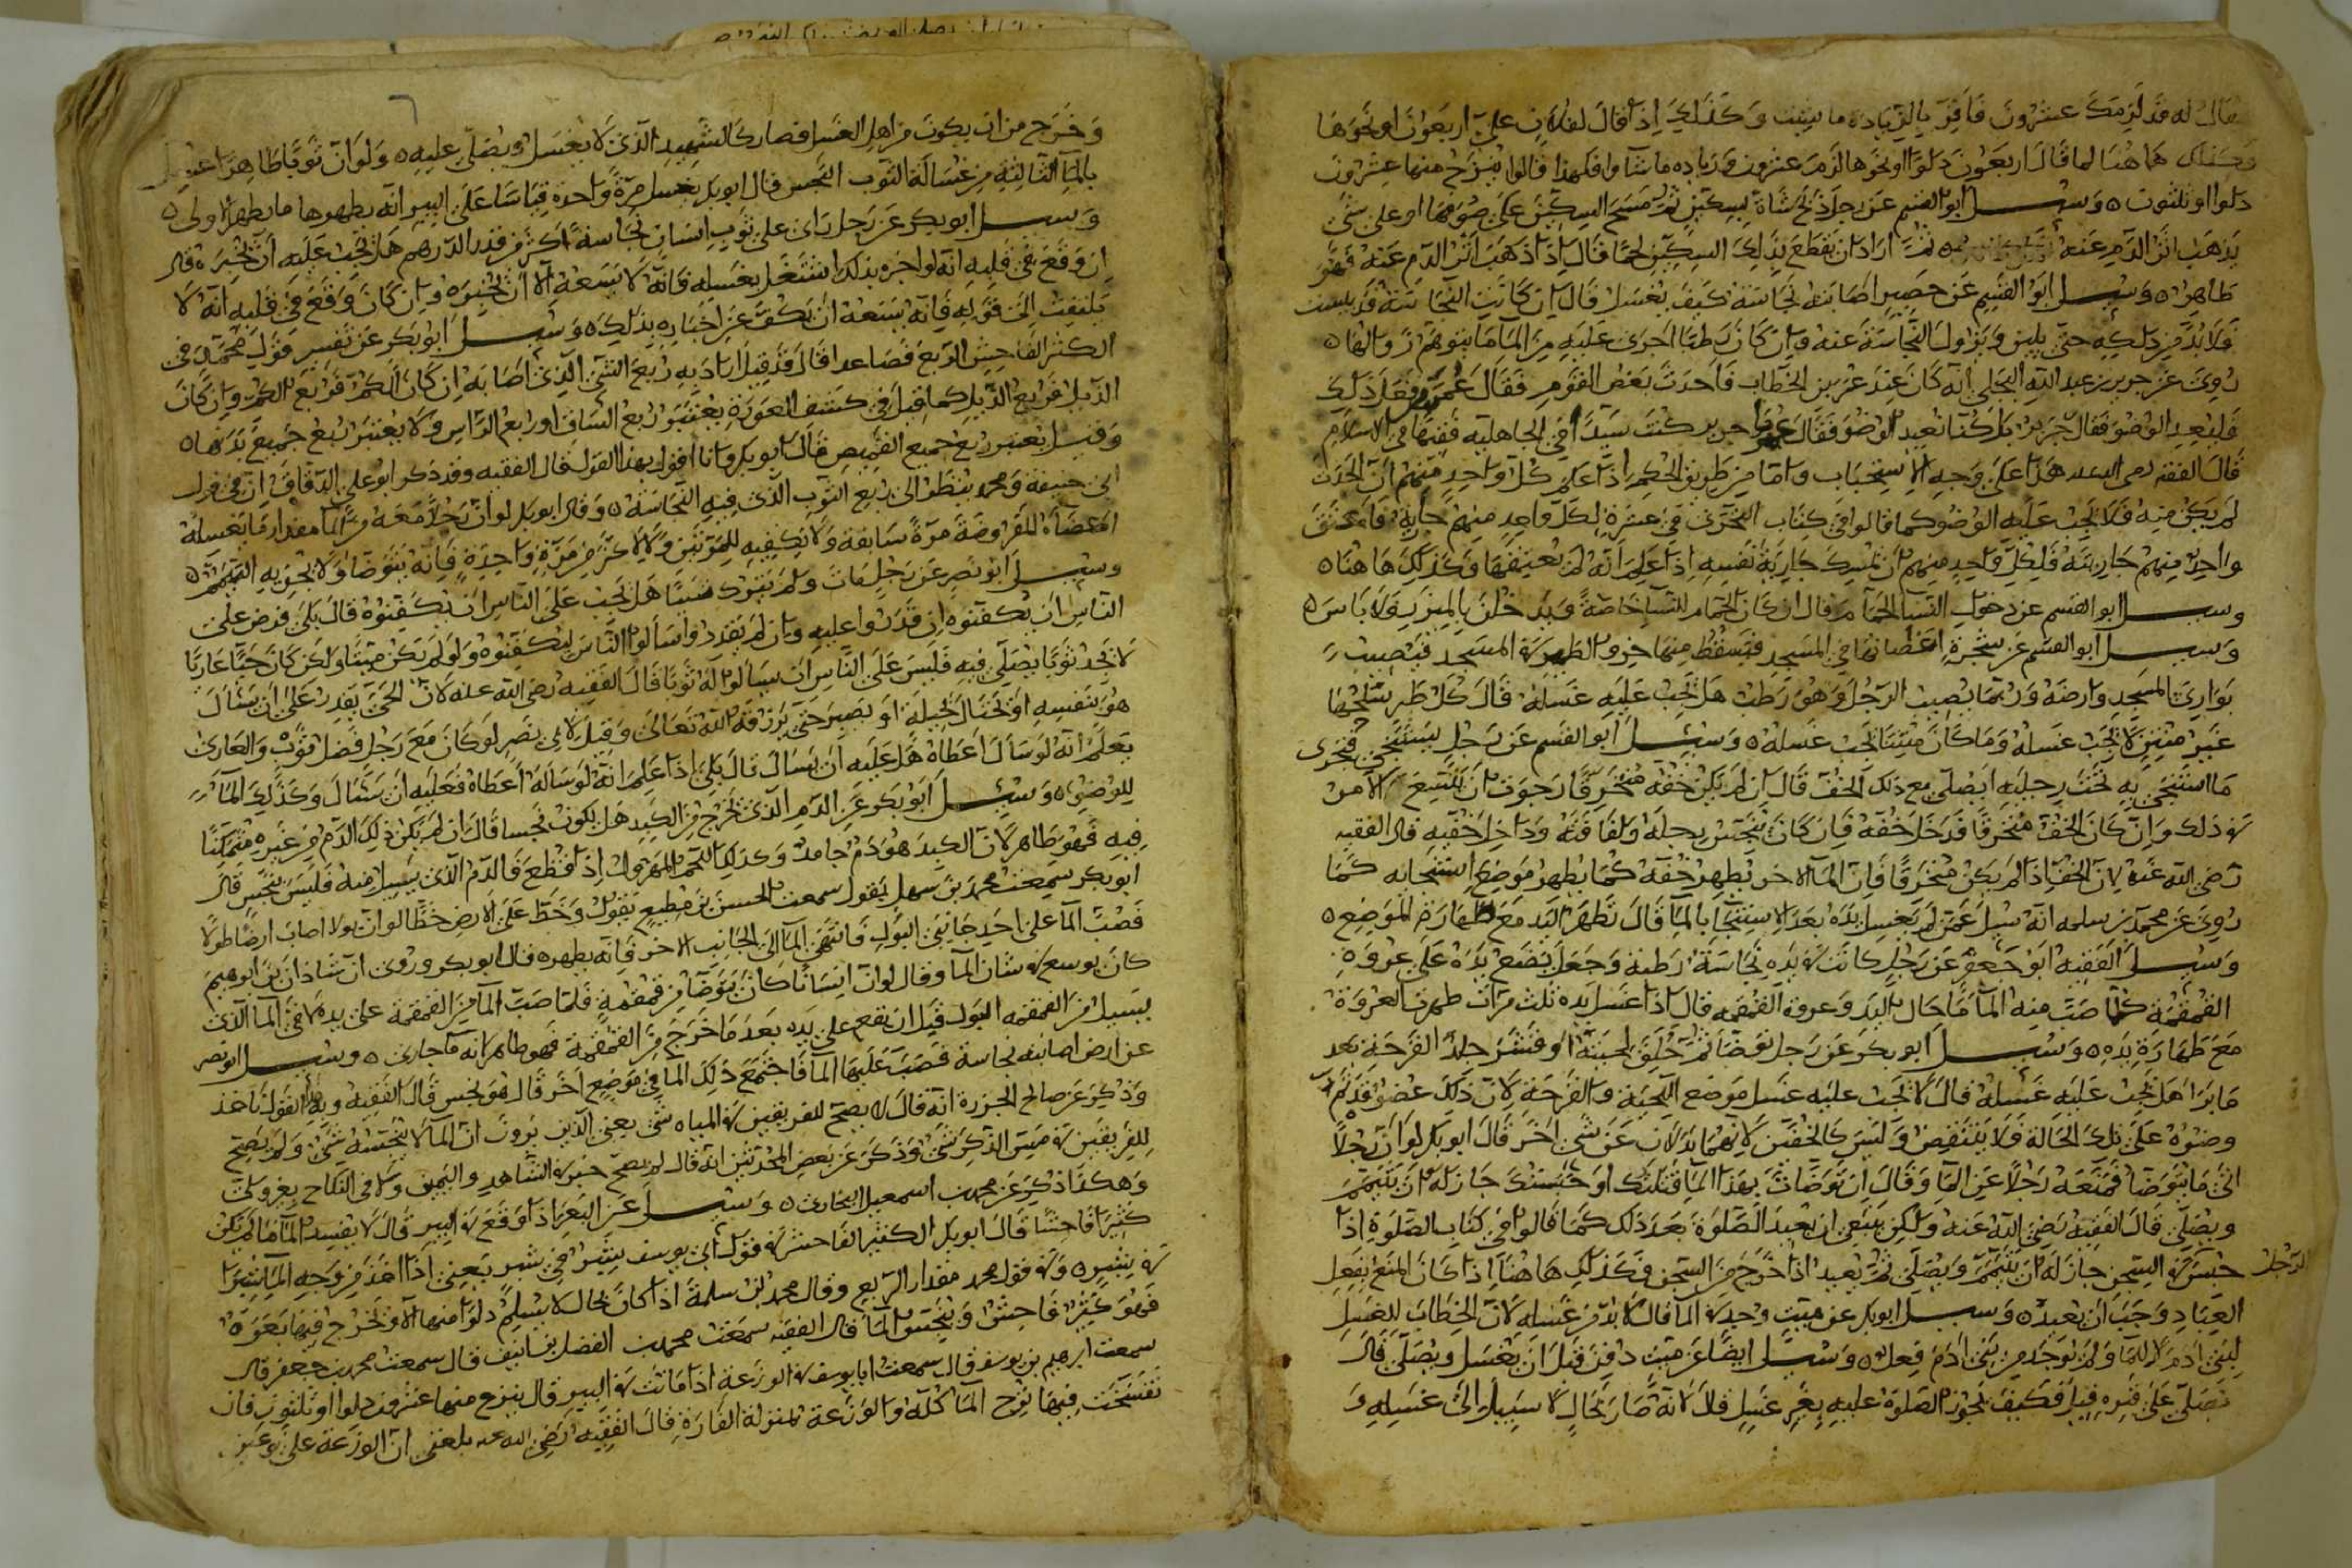 يقال له قد لزمك عشرون فاقر بالزيادة ما شئت وكذلك اذا قال لفلان علي اربعون او نحوها
هاهنا لما قال اربعون دلوا او نحوها لزمه عشرون وزياده ما شاوا فلهذا قالوا ينزح منها عشرون
دلوا او ثلثون ه وسيل ابو القسم عن رجل ذبح شاة بسكين ثم مسح السكين على صوفها او على شى
يذهب اثر الدم عنه ثم اراد ان يقطع بذلك السكين لحما قال اذا ذهب اثر الدم عنه فهو
طاهر ه وسيل ابو القسم عن حصير اصابته نجاسة كيف يغسل قال ان كانت النجاسة قد يبست
فلا بد من دلكه حتى يلين ويزول النجاسة عنه وان كان رطبا اجرى عليه من الما ما يتوهم زوالها ه
روى عن جرير بن عبد الله البجلي انه كان عند عمر بن الخطاب فاحدث بعض القوم فقال عمر
فليعد الوضو فقال جرير بل كلنا نعيد الوضو فقال عمر يا جرير كنت سيدا في الجاهلية فقيها في الاسلام
قال الفقيه رضى الله عنه هذا على وجه الاستحباب واما من طريق الحكم اذا علم كل واحد منهم ان الحدث
لم يكن منه فلا يجب عليه الوضو كما قالوا في كتاب التحرى في عشرة لكل واحد منهم جارية فاعتق
واحد منهم جاريته فلكل واحد منهم ان يمسك جارية نفسه اذا علم انه لم يعتقها وكذلك ها هنا ه
وسيل ابو القسم عن دخول النسا الحمام قال ان كان الحمام للنسا خاصة ويدخلن بالميزر فلا باس ه
وسيل ابو القسم عن شجرة اغصانها في المسجد فيسقط منها خرو الطير في المسجد فيصيب
بوارى المسجد وارضه وربما يصيب الرجل وهو رطب هل يجب عليه غسله قال كل طير سلحها
غير منتن لا يجب غسله وما كان منتنا يجب غسله ه وسيل ابو القسم عن رجل يستنجي فيجرى
ما استنجى به تحت رجليه ايصلي مع ذلك الخف قال ان لم يكن خفه منخرقا رجوت ان يتسع الامر
في ذلك وان كان الخف منخرقا فدخل خفه فان كان ينجس رجله ولفافته وداخل خفيه قال الفقيه
رضى الله عنه لان الخف اذا لم يكن منخرقا فان الما الاخر يطهر خفه كما يطهر موضع استنجايه كما
روى عن محمد بن سلمه انه سيل عمن لم يغسل يده بعد الاستنجا بالما قال تطهر اليد مع طهارة الموضع ه
وسيل الفقيه ابو جعفر عن رجل كانت في يده نجاسة رطبة وجعل يضع يده على عروة
القمقمة كلما صب منه الما ما حال اليد وعروة القمقمه قال اذا غسل يده ثلث مرات طهرت العروة
مع طهارة يده ه وسيل ابو بكر عن رجل توضا ثم حلق لحيته او قشر جلد القرحة بعد
ما برا هل يجب عليه غسله قال لا يجب عليه غسل موضع اللحية والقرحة لان ذلك عضو قد تم
وضوه على تلك الحالة فلا ينتقض وليس كالخفين لانهما بدلان عن شى اخر قال ابو بكر لو ان رجلا
اتى ما يتوضا فمنعه رجلا عن الما وقال ان توضات بهذا الما قتلتك او حبستك جاز له ان يتيمم
ويصلي قال الفقيه رضى الله عنه ولكن ينبغي ان يعيد الصلوة بعد ذلك كما قالوا في كتاب الصلوة اذا
حبس في السجن جاز له ان يتيمم ويصلي ثم يعيد اذا خرج من السجن فكذلك ها هنا اذا كان المنع بفعل
الرجل
العباد وجب ان يعيد ه وسيل ابو بكر عن ميت وجد في الما قال لا بد من غسله لان الخطاب للغسل
لبني ادم لا للما ولم يوجد من بني ادم فعل ه وسيل ايضا عن ميت دفن قبل ان يغسل ويصلي قال
نصلي على قبره قيل فكيف يجوز الصلوة عليه بغير غسل قال لانه صار بحال لا سبيل الى غسله و
وخرج من ان يكون من اهل الغسل فصار كالشهيد الذى لا يغسل ويصلى عليه ه ولو ان ثوبا طاهرا غسل
بالما الثالثة من غسالة الثوب النجس قال ابو بكر يغسل مرة واحدة قياسا على البير انه يطهرها ما يطهر الاولى ه
وسيل ابو بكر عن رجل راى على ثوب انسان نجاسة اكثر من قدر الدرهم هل يجب عليه ان يخبره قال
ان وقع في قلبه انه لو اخبره بذلك اشتغل بغسله فانه لا يسعه الا ان يخبره وان كان وقع في قلبه انه لا
يلتفت الى قوله فانه يسعه ان يكف عن اخباره بذلك ه وسيل ابو بكر عن تفسير قول محمد في
الكثير الفاحش الربع فصاعدا قال قد قيل اراد به ربع الشى الذى اصابه ان كان الكم فربع الكم وان كان
الذيل فربع الذيل كما قيل في كشف العورة يعتبر ربع الساق او ربع الراس ولا يعتبر ربع جميع بدنها ه
وقيل يعتبر ربع جميع القميص قال ابو بكر وانا اقول بهذا القول قال الفقيه وقد ذكر ابو علي الدقاق ان في قول
ابي حنيفة ومحمد ينظر الى ربع الثوب الذى فيه النجاسة ه وقال ابو بكر لو ان رجلا معه من الما مقدار ما يغسل
اعضاه المفروضة مرة سابغة ولا يكفيه للمرتين ولا لاكثر من مرة واحدة فانه يتوضا ولا يجزيه التيمم ه
وسيل ابو نصر عن رجل مات ولم يترك شيا هل يجب على الناس ان يكفنوه قال بلى فرض على
الناس ان يكفنوه ان قدروا عليه وان لم يقدروا سالوا الناس ليكفنوه ولو لم يكن ميتا ولكن كان حيا عاريا
لا يجد ثوبا يصلي فيه فليس على الناس ان يسالوا له ثوبا قال الفقيه رضى الله عنه لان الحى يقدر على ان يسال
هو بنفسه او يحتال بحيلة او يصبر حتى يرزقه الله تعالى وقيل لابي نصر لو كان مع رجل فضل ثوب والعارى
يعلم انه لو سال اعطاه هل عليه ان يسال قال بلى اذا علم انه لو ساله اعطاه فعليه ان يسال وكذلك الما
للوضو ه وسيل ابو بكر عن الدم الذى يخرج من الكبد هل يكون نجسا قال ان لم يكن ذلك الدم من غيره متمكنا
فيه فهو طاهر لان الكبد هو دم جامد وكذلك اللحم المهزول اذا قطع فالدم الذى يسيل منه فليس بنجس قال
ابو بكر سمعت محمد بن سهل يقول سمعت الحسن بن مطيع يقول وخط على الارض خطا لو ان بولا اصاب ارضا طولا
فصب الما على احد جانبي البول فانتهى الما الى الجانب الاخر فانه يطهره قال ابو بكر وروى ان شاذان بن ابرهيم
كان يوسع في شان الما وقال لو ان انسانا كان يتوضا من قمقمة فلما صب الما من القمقمة على يده لاقى الما الذى
يسيل من القمقمه البول قبل ان يقع على يده بعد ما خرج من القمقمة فهو طاهر لانه ما جارى ه وسيل ابو نصر
عن ارض اصابته نجاسة فصب عليها الما فاجتمع ذلك الما في موضع اخر قال هو نجس قال الفقيه وبهذا القول ناخذ
وذكر عن صالح الجزرة انه قال لا يصح للفريقين في المياه شى يعني الذين يرون ان الما لا ينجسه شى ولم يصح
للفريقين في مس الذكر شى وذكر عن بعض المحدثين انه قال لم يصح خبر في الشاهد واليمين ولا في النكاح بغير ولي
وهكذا ذكر عن محمد بن اسمعيل البخارى ه وسيل عن البعر اذا وقع في البير قال لا يفسد الما ما لم يكن
كثيرا فاحشا قال ابو بكر الكثير الفاحش في قول ابي يوسف شبر في شبر يعني اذا اخذ من وجه الما شبرا
في شبر ه وفي قول محمد مقدار الربع وقال محمد بن سلمة اذا كان بحال لا يسلم دلوا منها الا ويخرج فيها بعرة
فهو كثير فاحش وينجس الما قال الفقيه سمعت محمد بن الفضل بن انيف قال سمعت محمد بن جعفر قال
سمعت ابرهيم بن يوسف قال سمعت ابا يوسف في الوزغة اذا ماتت في البير قال ينزح منها عشرون دلوا او ثلثون فان
تفسخت فيها نزح الما كله والوزغة بمنزلة الفارة قال الفقيه رضى الله عنه بلغني ان الوزغة على نوعين